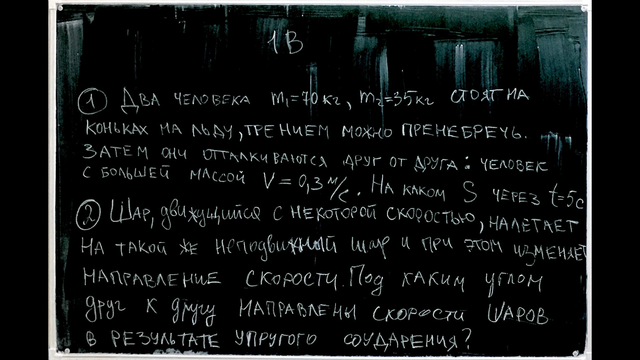 1В
① Два человека m₁=70кг, m₂=35кг стоят на
коньках на льду, трением можно пренебречь.
Затем они отталкиваются друг от друга: человек
с большей массой V=0,3 м/с. На каком S через t=5с
② Шар, движущийся с некоторой скоростью, налетает
на такой же неподвижный шар и при этом изменяет
направление скорости. Под каким углом
друг к другу направлены скорости шаров
в результате упругого соударения?